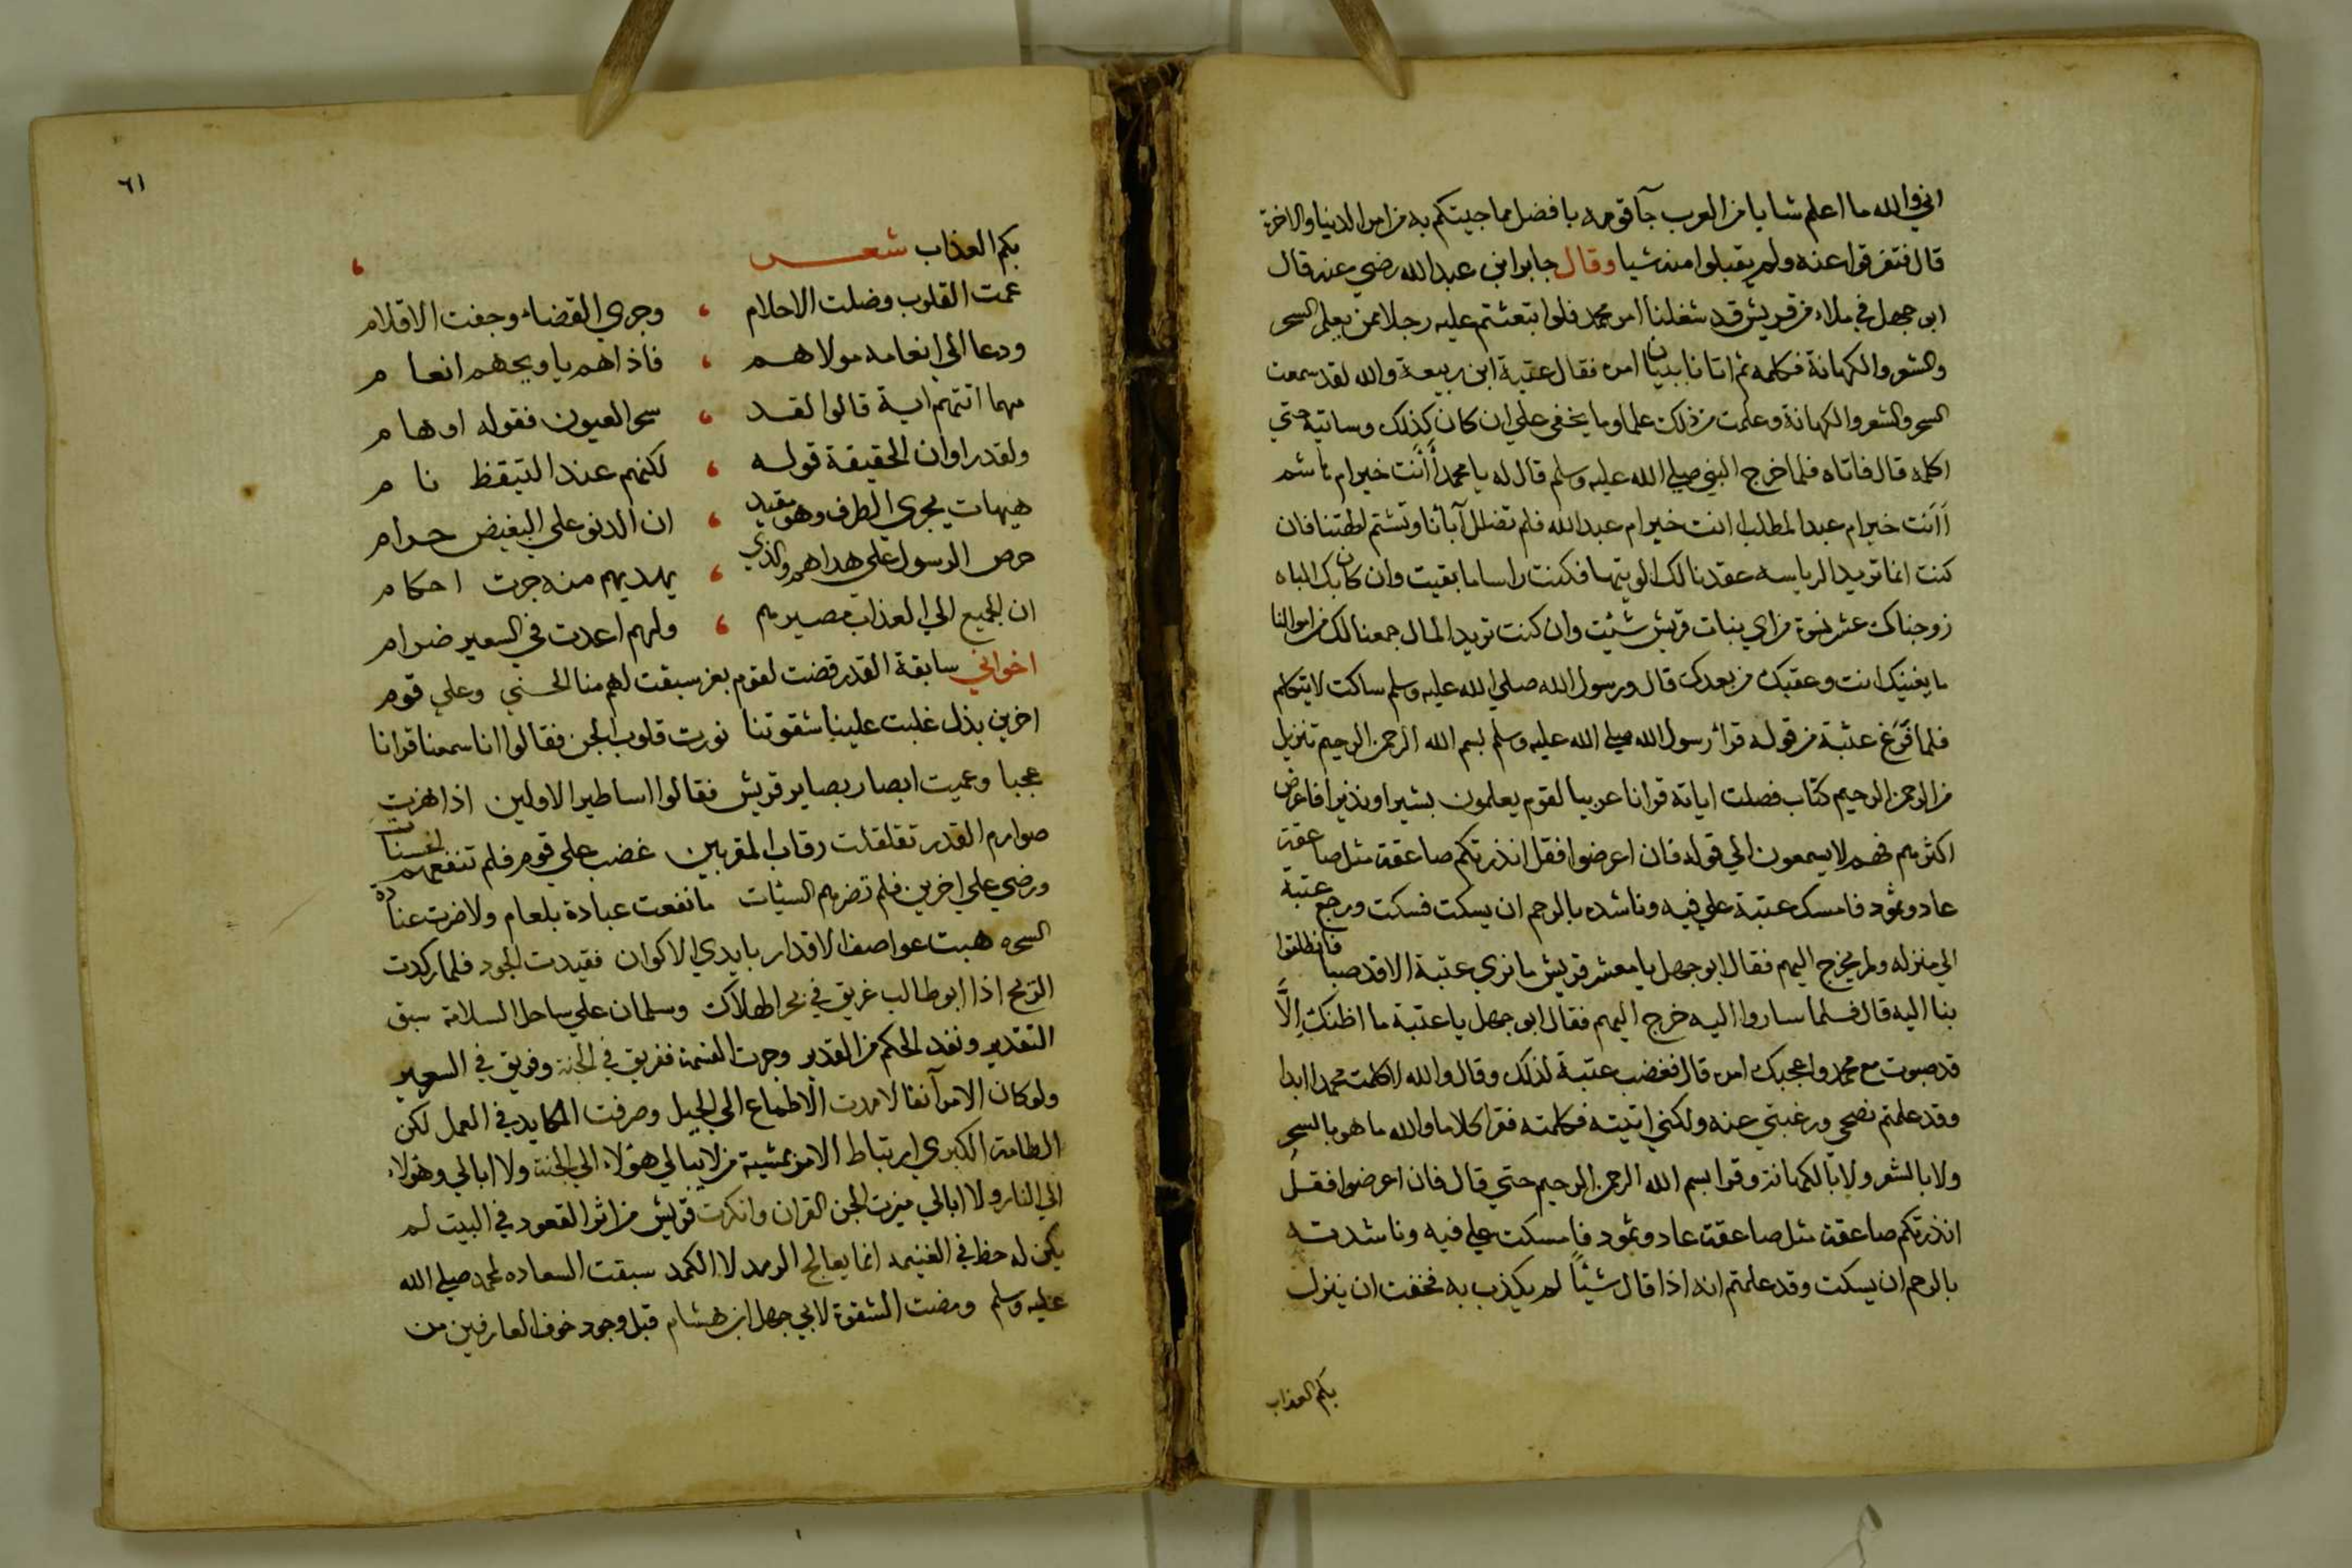 اني والله ما اعلم شابا من العرب جآ قومه بافضل مما جيتكم به من امر الدنيا والاخرة
قال فتفرقوا عنه ولم يقبلوا منه شيا وقال جابر ابن عبد الله رضي عنه قال
ابو جهل في ملاء من قريش قد شغلنا امر محمد فلو ابتعثتم عليه رجلا ممن يعلم السحر
والشعر والكهانة فكلمه ثم اتانا ببيان امره فقال عتبة ابن ربيعة والله لقد سمعت
السحر والشعر والكهانة وعلمت من ذلك علما وما يخفي علي ان كان كذلك وساتيه حتي
اكلمه قال فاتاه فلما خرج النبي صلي الله عليه وسلم قال له يا محمد أأنت خير ام هاشم
أأنت خير ام عبد المطلب انت خير ام عبد الله فلم تضلل آبأنا وتشتم الهتنا فان
كنت انما تريد الرياسه عقدنا لك الويتها فكنت راسا ما بقيت وان كان بك الباه
زوجناك عشر نسوة من اي بنات قريش شئت وان كنت تريد المال جمعنا لك من اموالنا
ما يغنيك انت وعقبك من بعدك قال ورسول الله صلي الله عليه وسلم ساكت لا يتكلم
فلما فرغ عتبة من قوله قرأ رسول الله صلي الله عليه وسلم بسم الله الرحمن الرحيم تنزيل
من الرحمن الرحيم كتاب فصلت اياته قرانا عربيا لقوم يعلمون بشيرا ونذيرا فاعرض
اكثرهم فهم لا يسمعون الي قوله فان اعرضوا فقل انذرتكم صاعقة مثل صاعقة
عاد وثمود فامسك عتبة علي فيه وناشده بالرحم ان يسكت فسكت ورجع عتبة
الي منزله ولم يخرج اليهم فقال ابو جهل يا معشر قريش ما نري عتبة الا قد صبا فانطلقوا
بنا اليه قال فلما ساروا اليه خرج اليهم فقال ابو جهل يا عتبة ما اظنك إلّا
قد صبوت مع محمد واعجبك امره قال فغضب عتبة لذلك وقال والله لا كلمت محمدا ابدا
وقد علمتم نصحي ورغبتي عنه ولكني اتيته فكلمته فقرا كلاما والله ما هو بالسحر
ولا بالشعر ولا بالكهانة وقرا بسم الله الرحمن الرحيم حتي قال فان اعرضوا فقل
انذرتكم صاعقة مثل صاعقة عاد وثمود فامسكت علي فيه وناشدته
بالرحم ان يسكت وقد علمتم انه اذا قال شيئاً لم يكذب به فخفت ان ينزل
بكم العذاب
٦١
بكم العذاب شعر
عمت القلوب وضلت الاحلام ، وجري القضاء وجفت الاقلام
ودعا الي انعامه مولاهم ، فاذا هم يا ويحهم انعام
مهما اتتهم اية قالوا لقد ، سحر العيون فقوله اوهام
ولقد راوا ان الحقيقة قوله ، لكنهم عند التيقظ نام
هيهات يجري الطرف وهو مقيد ، ان الدنو علي البغيض حرام
حرص الرسول علي هداهم والذي ، يهديهم منه جرت احكام
ان الجميع الي العذاب مصيرهم ، ولهم اعدت في السعير ضرام
اخواني سابقة القدر قضت لقوم بعز سبقت لهم منا الحسني وعلي قوم
اخرين بذل غلبت علينا شقوتنا نورت قلوب الجن فقالوا انا سمعنا قرانا
عجبا وعميت ابصار بصاير قريش فقالوا اساطير الاولين اذا هزت
صوارم القدر تقلقلت رقاب المقربين غضب علي قوم فلم تنفعهم الحسنات
ورضي علي اخرين فلم تضرهم السيئات ما نفعت عبادة بلعام ولا ضرت عنادة
السحره هبت عواصف الاقدار بايدي الاكوان فقيدت الجود فلما ركدت
الريح اذا ابو طالب غريق في بحر الهلاك وسلمان علي ساحل السلامة سبق
التقدير ونفذ الحكم من القدير وجرت القسمة ففريق في الجنة وفريق في السعير
ولو كان الامر آنفا لامدت الاطماع الي الحيل وصرفت المكايد في العمل لكن
الطامة الكبري ارتباط الامر بمشية من لا يبالي هؤلاء الي الجنة ولا ابالي وهؤلاء
الي النار ولا ابالي ميزت الجن القران وانكرت قريش من اثر القعود في البيت لم
يكن له حظ في الغنيمه انما يعالج الرمد لا الكمد سبقت السعاده لمحمد صلي الله
عليه وسلم ومضت الشقوة لابي جهل ابن هشام قبل وجود خوف العارفين من